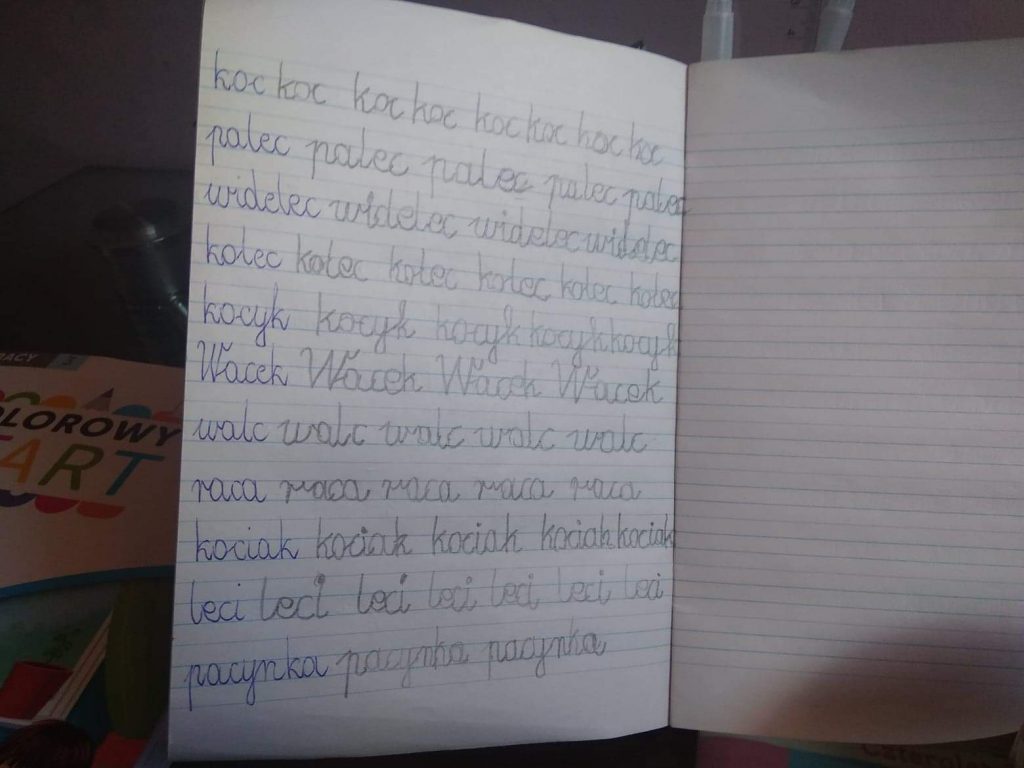 koc koc koc koc koc koc koc koc
palec palec palec palec palec
widelec widelec widelec widelec
kolec kolec kolec kolec kolec kolec
kocyk kocyk kocyk kocyk kocyk
Wacek Wacek Wacek Wacek
walc walc walc walc walc
raca raca raca raca raca
kociak kociak kociak kociak kociak
leci leci leci leci leci leci leci
pacynka pacynka pacynka
RACY
OLOROWY
ART